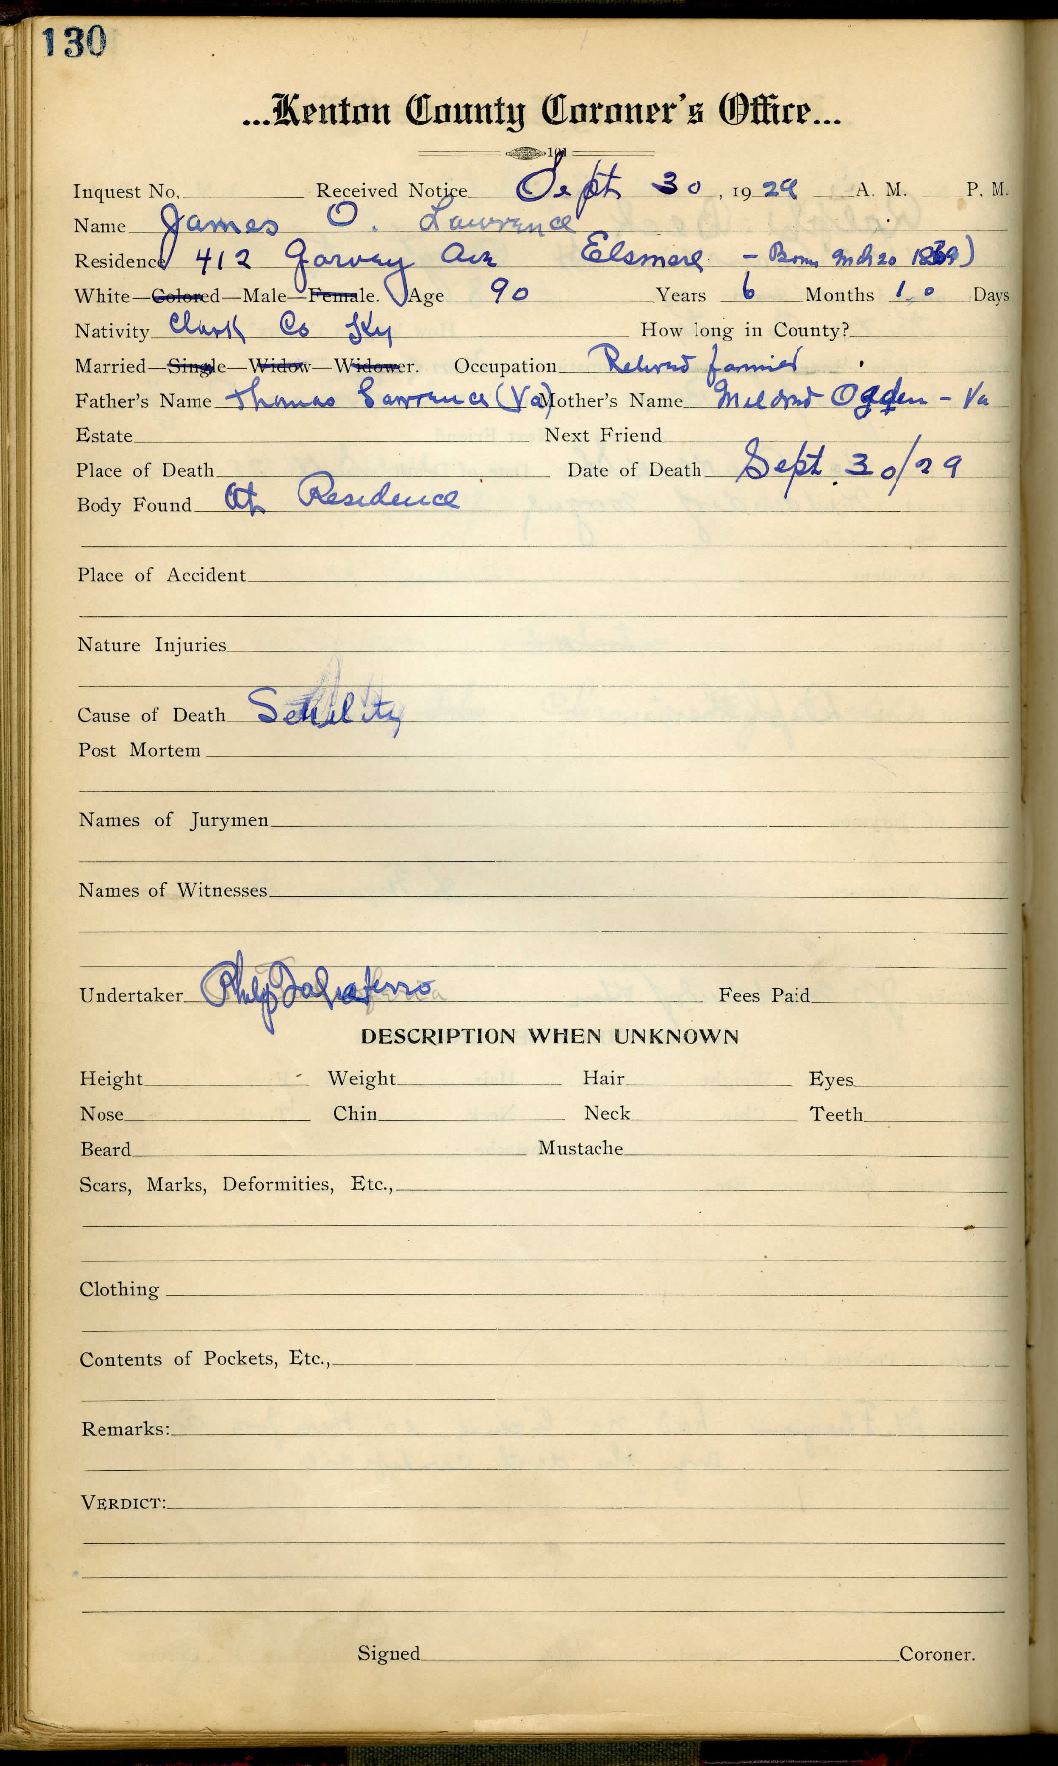 130
...Kenton County Coroner's Office...
101
Inquest No. Received Notice Sept 30, 1929 A. M. P. M.
Name James O. Lawrence
Residence 412 Garvey Ave Elsmere - Born Mch 20 1839)
White—Colored—Male—Female. Age 90 Years 6 Months 10 Days
Nativity Clark Co Ky How long in County?
Married—Single—Widow—Widower. Occupation Retired farmer
Father's Name Thomas Lawrence (Va) Mother's Name Mildred Ogden - Va
Estate Next Friend
Place of Death Date of Death Sept. 30/29
Body Found At Residence
Place of Accident
Nature Injuries
Cause of Death Senility
Post Mortem
Names of Jurymen
Names of Witnesses
Undertaker Philip Taliaferro Fees Paid
DESCRIPTION WHEN UNKNOWN
Height Weight Hair Eyes
Nose Chin Neck Teeth
Beard Mustache
Scars, Marks, Deformities, Etc.,
Clothing
Contents of Pockets, Etc.,
Remarks:
VERDICT:
Signed Coroner.